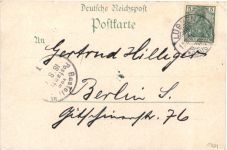 Deutsche Reichspost
Postkarte
An
Gertrud Hilliger
Berlin S.
Gitschinerstr. 76